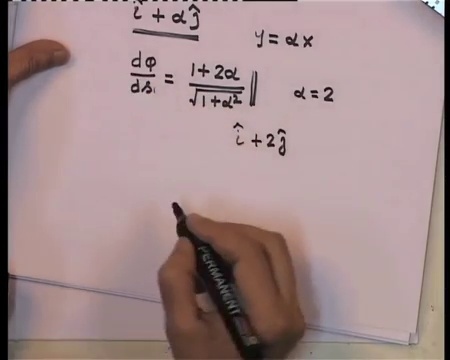 î + αĵ
y = αx
dφ/ds = (1+2α)/√(1+α²) α = 2
î + 2ĵ
PERMANENT